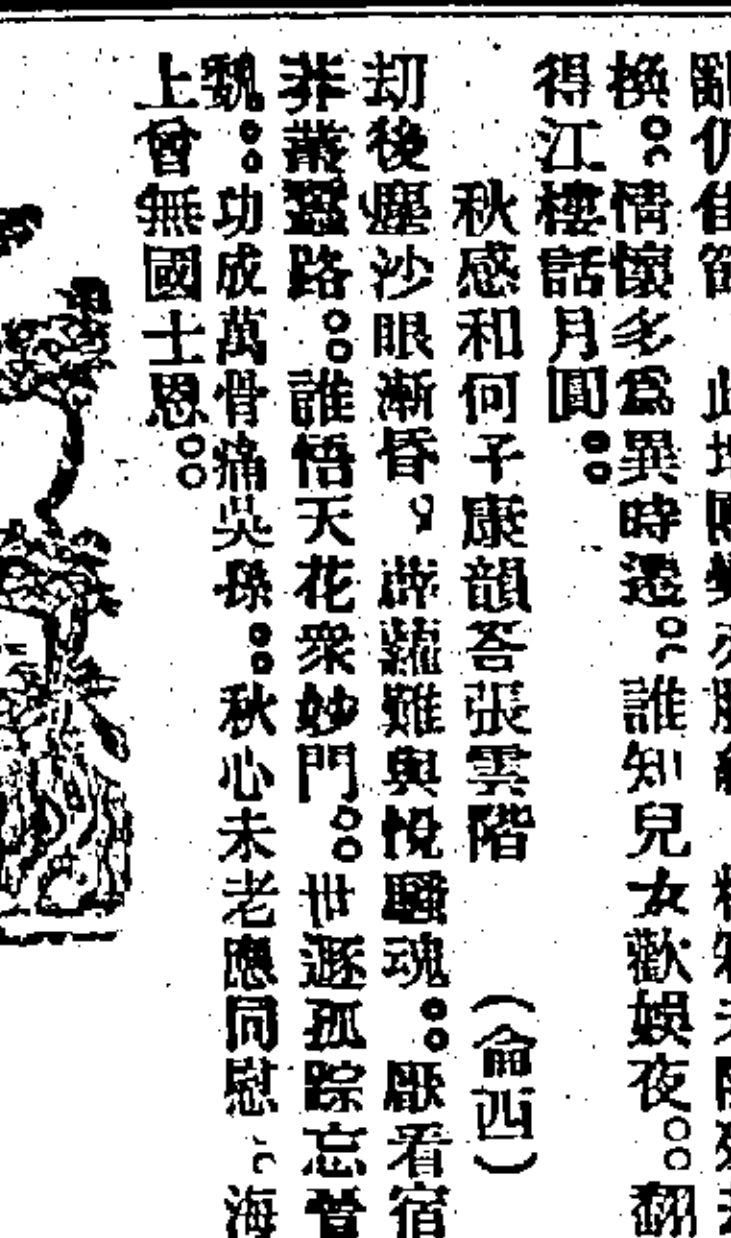 亂仍佳
換。情懷多爲異時遷。誰知兒女歡娛夜。翻
得江樓話月圓。
秋感和何子康韻荅張雲階 (侖西)
刧後塵沙眼漸昏，薜蘿難與悅騷魂。厭看宿
莽叢蠶路。誰悟天花衆妙門。世遯孤踪忘管
魏。功成萬骨痛吳孫。秋心未老應同慰。海
上曾無國士恩。